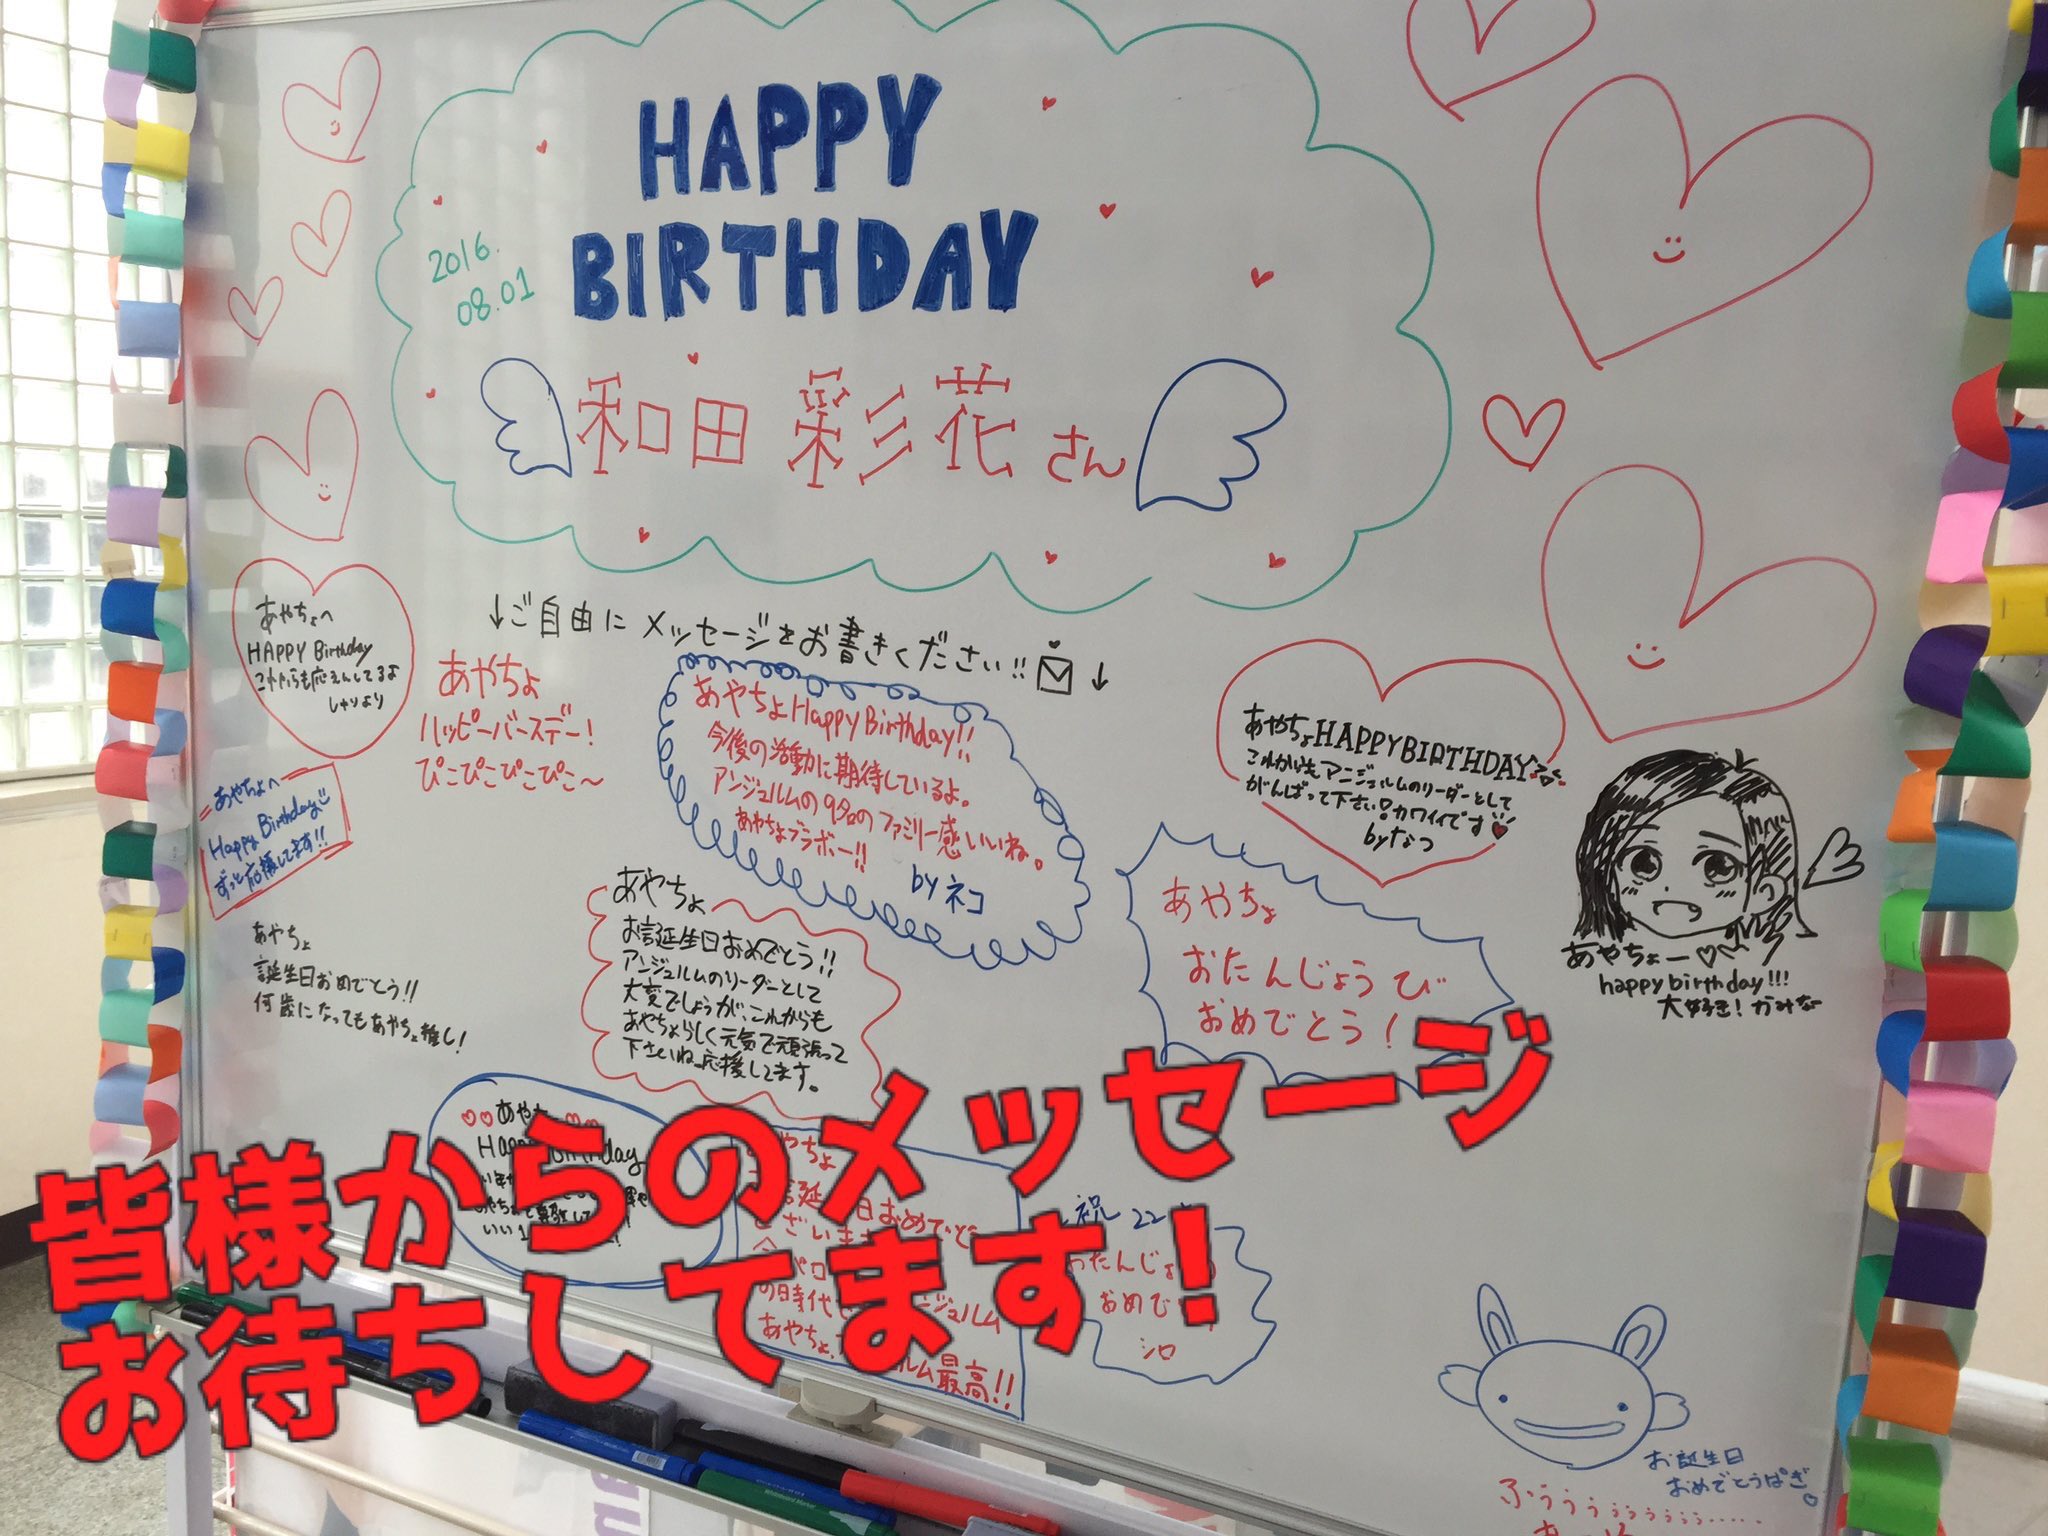 HAPPY
BIRTHDAY
2016.
08.01
和田 彩花 さん
↓ご自由にメッセージをお書きください!!↓
あやちょへ
HAPPY Birthday
これからも応えんしてるよ
しゃりより
あやちょ
ハッピーバースデー!
ぴこぴこぴこぴこ〜
あやちょHappy Birthday!!
今後の活動に期待しているよ。
アンジュルムの9名のファミリー感いいね。
あやちょブラボー!!
by ネコ
あやちょHAPPYBIRTHDAY
これからもアンジュルムのリーダーとして
がんばって下さい!カワイイです♥
byなつ
あやちょへ
Happy Birthday
ずっと応援してます!!
あやちょー♡
happy birthday!!!
大好き!かみな
あやちょ
お誕生日おめでとう!!
アンジュルムのリーダーとして
大変でしょうが、これからも
あやちょらしく元気で頑張って
下さいね。応援してます。
あやちょ
おたんじょうび
おめでとう!
あやちょ
誕生日おめでとう!!
何歳になってもあやちょ推し!
皆様からのメッセージ
お待ちしてます!
♡♡あやちょ
Happy Birthday
いい
やちょ
誕 日おめでと
ございま
の時代 ンジュルム
あやちょ、 ルム最高!!
祝 22
おたんじょ
おめで
シロ
お誕生日
おめでとうぱぎ。
ふぅぅぅぅぅぅぅ.....